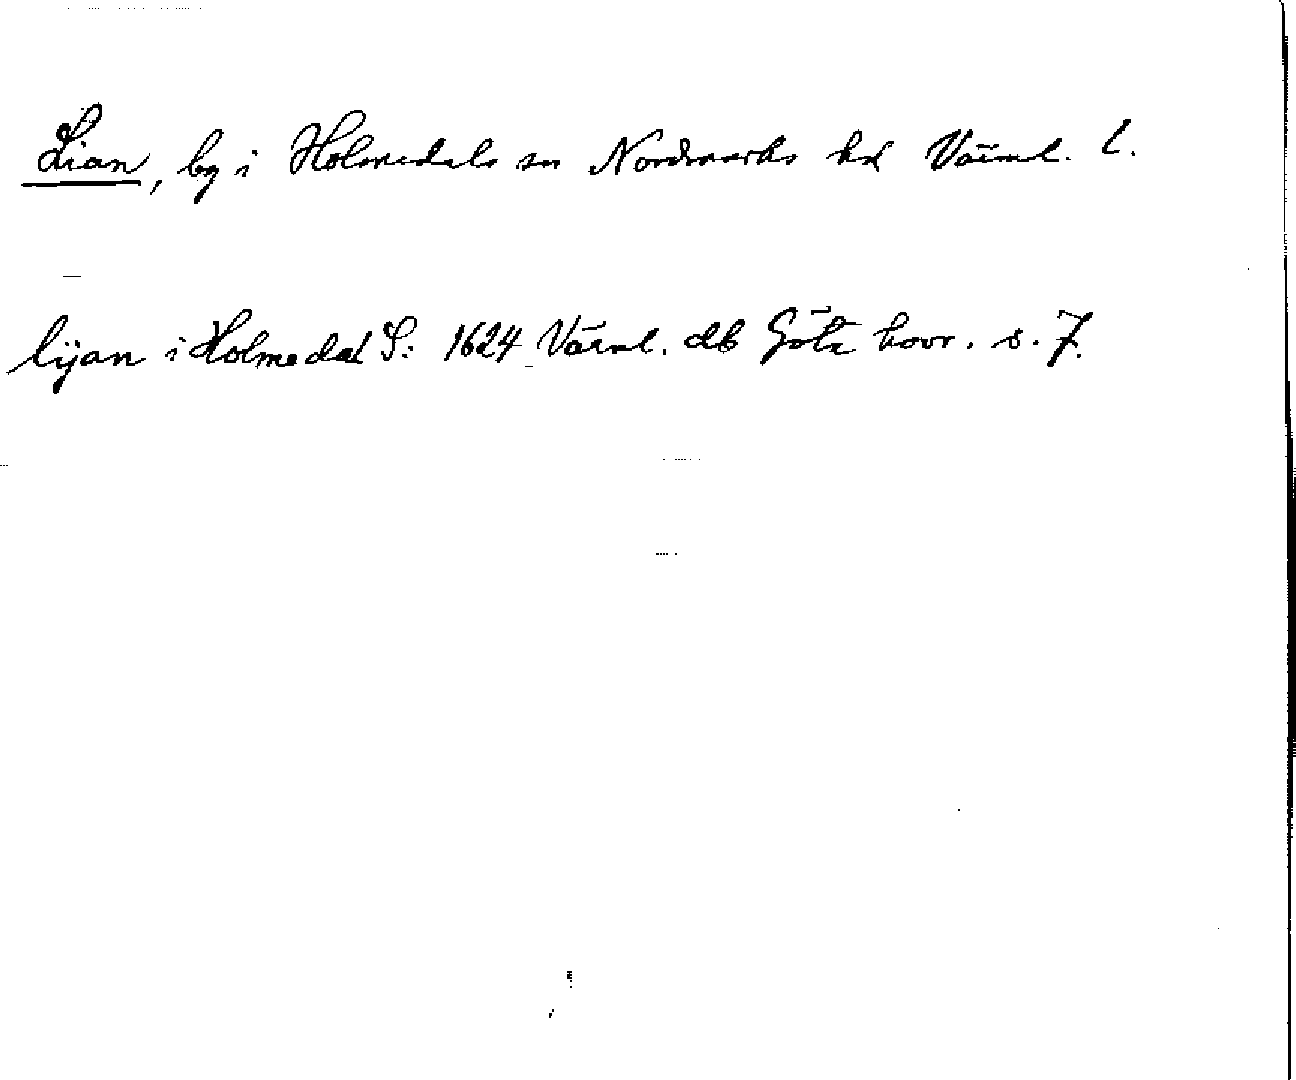 Lian, by i Holmedals sn Nordmarks hd Värml. l.
lijan i Holmedal S: 1624 Värml. db Göta hovr. s. 7.